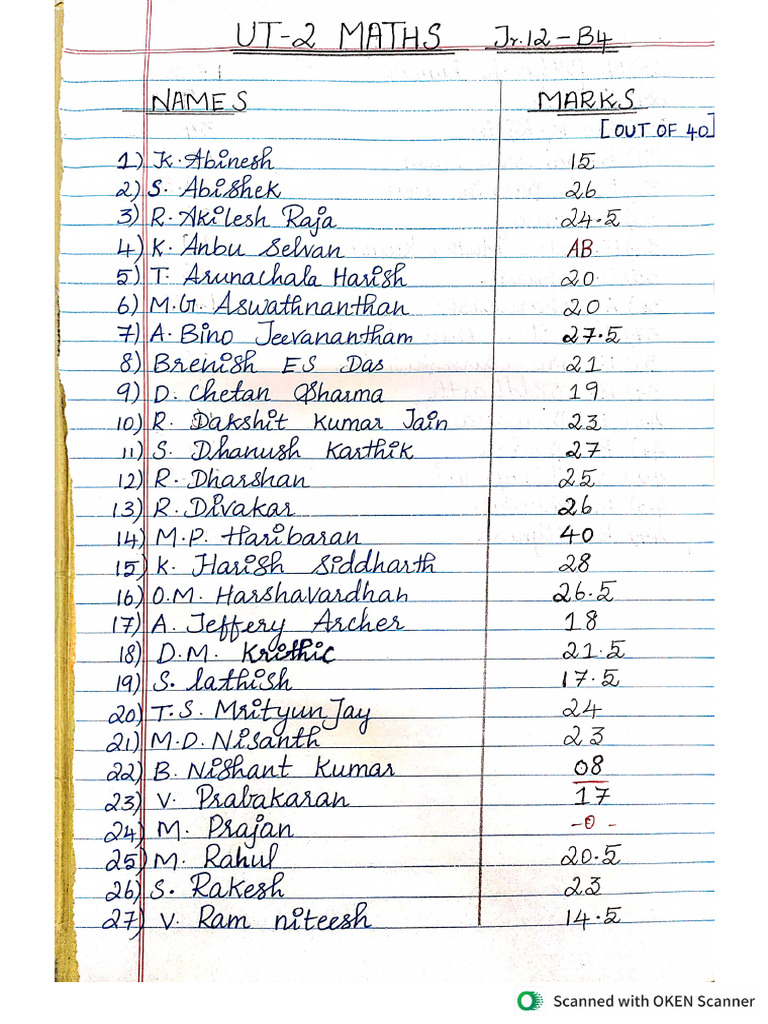 UT-2 MATHS Jr.12-B4
NAMES MARKS
[OUT OF 40]
1) K. Abinesh 15
2) S. Abishek 26
3) R. Akilesh Raja 24.5
4) K. Anbu Selvan AB
5) T. Arunachala Harish 20
6) M.G. Aswathnanthan 20
7) A. Bino Jeevanantham 27.5
8) Brenish ES Das 21
9) D. Chetan Sharma 19
10) R. Dakshit Kumar Jain 23
11) S. Dhanush Karthik 27
12) R. Dharshan 25
13) R. Divakar 26
14) M.P. Haribaran 40
15) K. Harish Siddharth 28
16) O.M. Harshavardhan 26.5
17) A. Jeffery Archer 18
18) D.M. Krithic 21.5
19) S. lathish 17.5
20) T.S. MrityunJay 24
21) M.D. Nisanth 23
22) B. Nishant Kumar 08
23) V. Prabakaran 17
24) M. Prajan -0-
25) M. Rahul 20.5
26) S. Rakesh 23
27) V. Ram niteesh 14.5
Scanned with OKEN Scanner